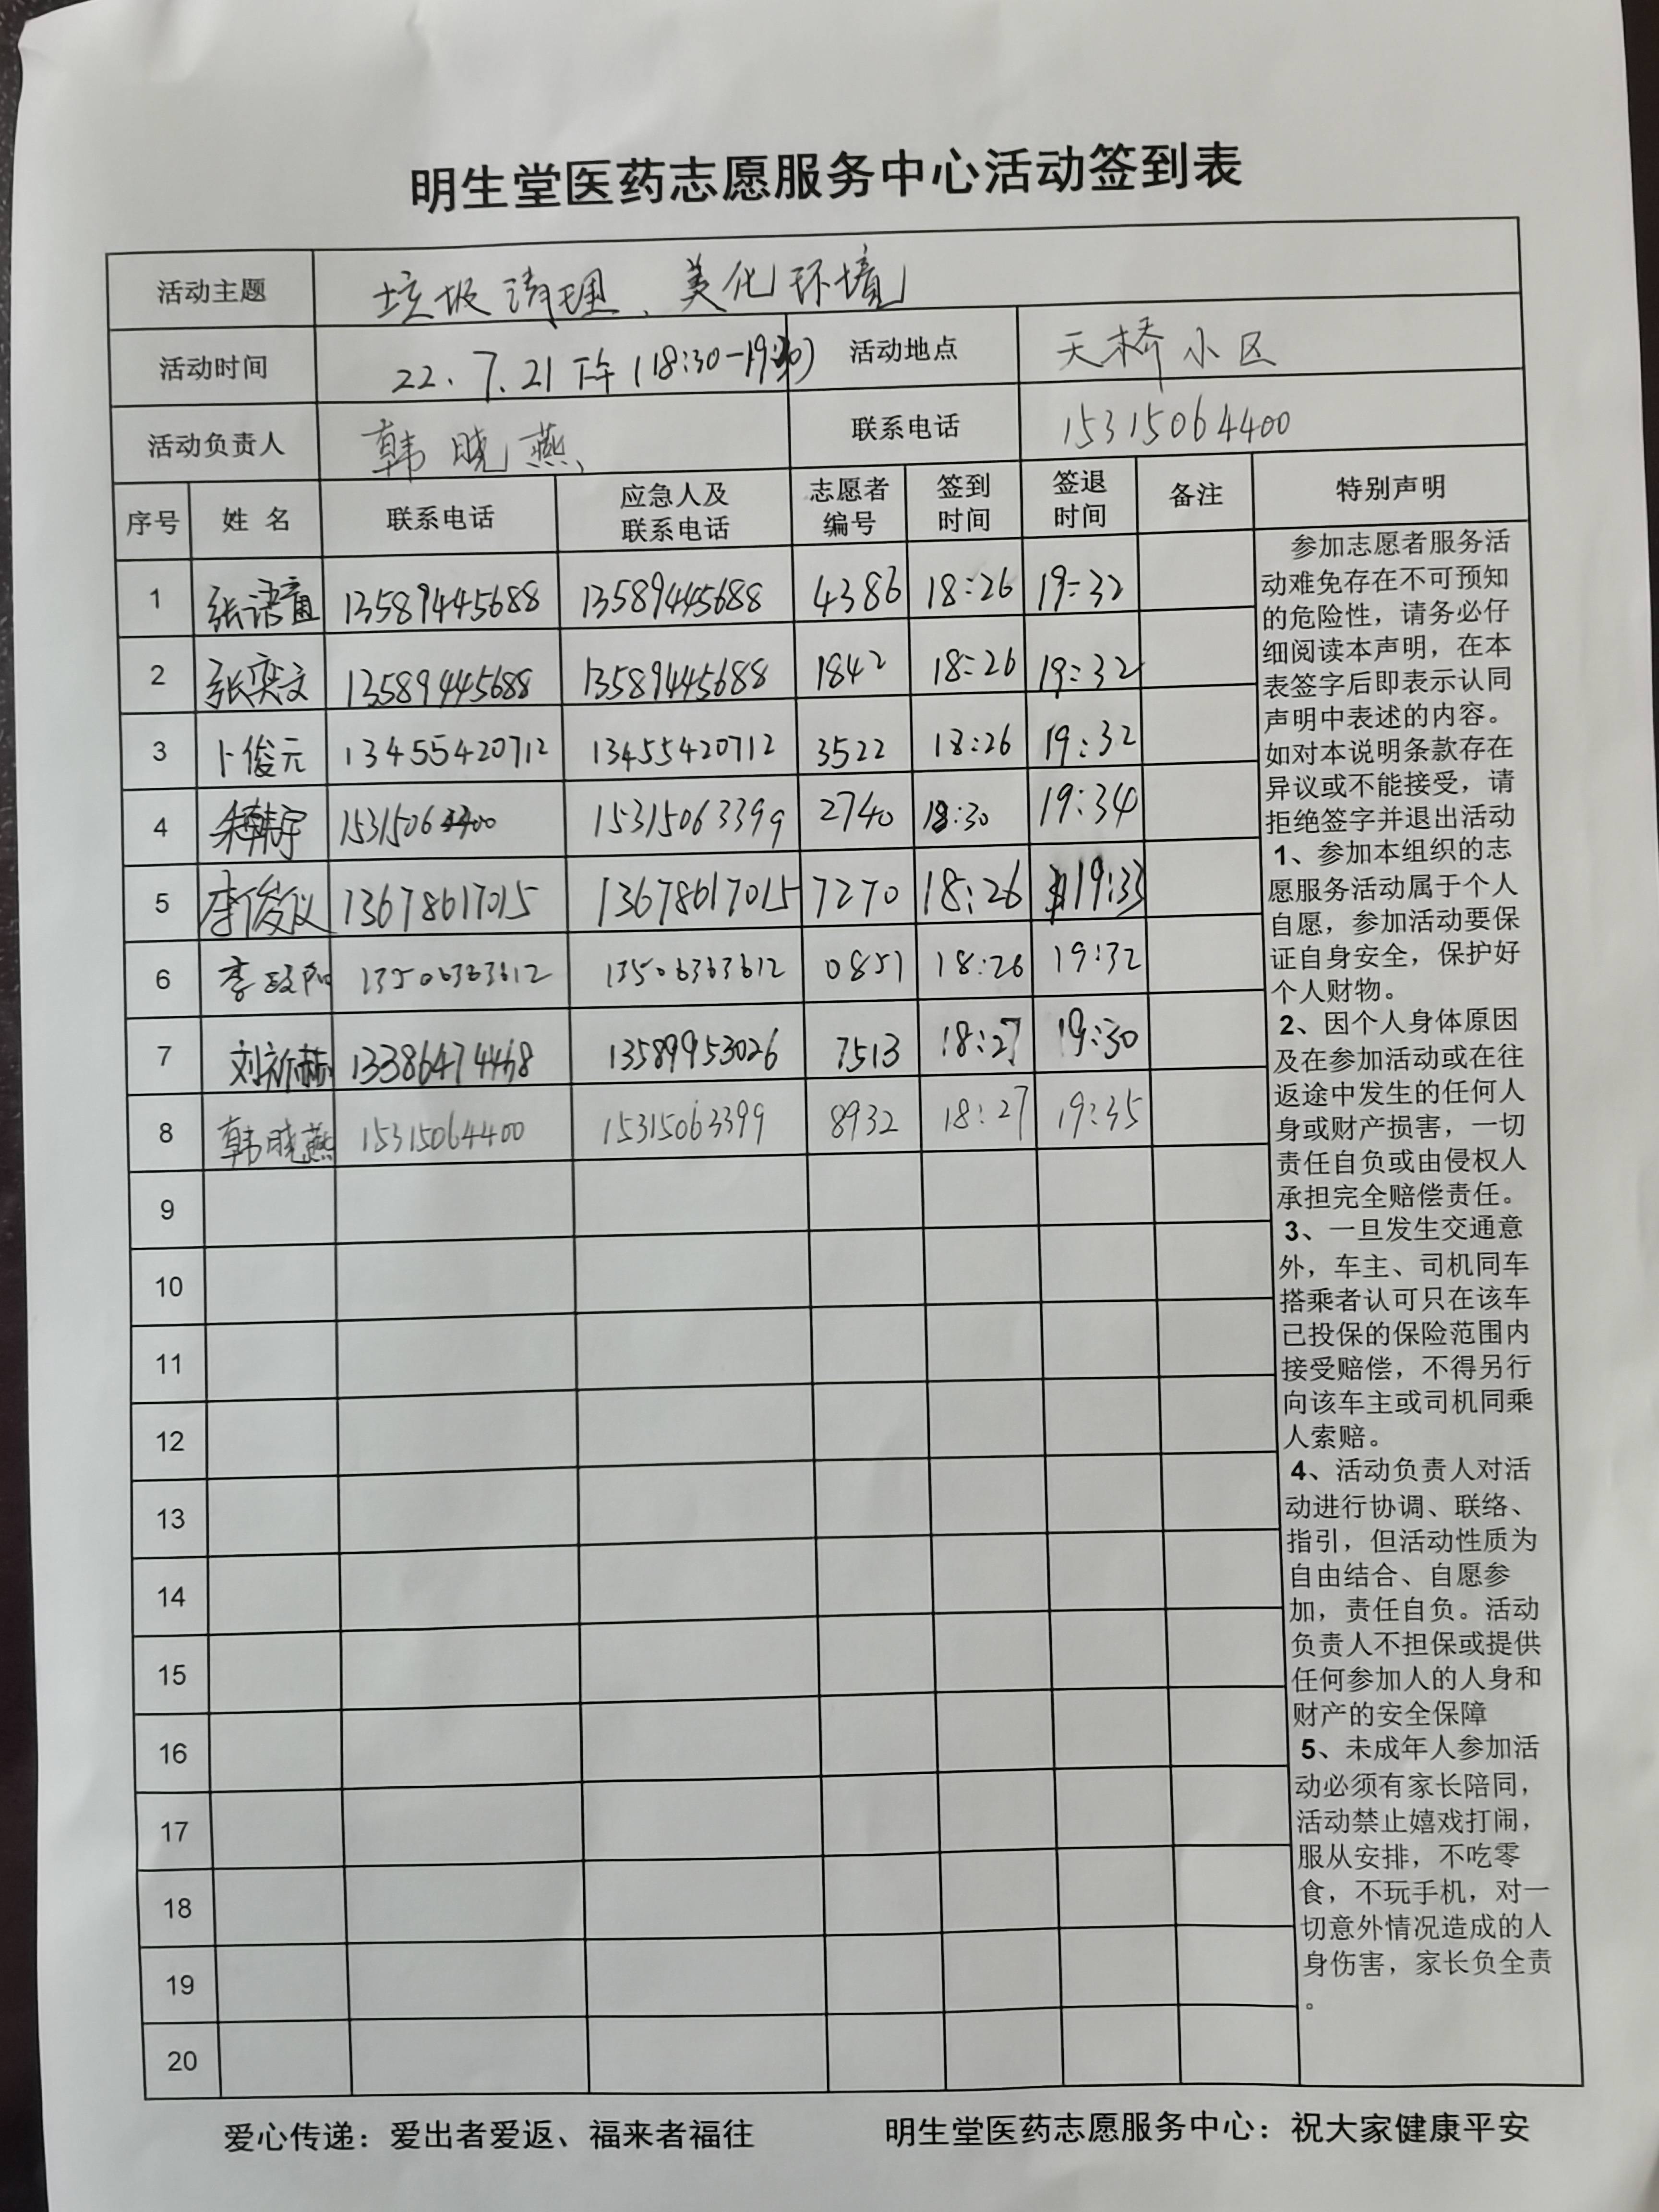 明生堂医药志愿服务中心活动签到表
活动主题 垃圾清理、美化环境
活动时间 22.7.21 下午(18:30-19:30) 活动地点 天桥小区
活动负责人 韩晓燕 联系电话 15315064400
序号 姓 名 联系电话 应急人及联系电话 志愿者编号 签到时间 签退时间 备注 特别声明
1 张语 13589445688 13589445688 4386 18:26 19:32
2 张奕文 13589445688 13589445688 1842 18:26 19:32
3 卜俊元 13455420712 13455420712 3522 18:26 19:32
4 朱韩宇 15315063399 2740 18:30 19:34
5 李俊仪 13678617015 13678617015 7270 18:26 19:33
6 李 13506363612 13506363612 0851 18:26 19:32
7 刘祈赫 13386474468 13589953026 7513 18:27 19:30
8 韩晓燕 15315064400 15315063399 8932 18:27 19:35
9
10
11
12
13
14
15
16
17
18
19
20
参加志愿者服务活
动难免存在不可预知
的危险性，请务必仔
细阅读本声明，在本
表签字后即表示认同
声明中表述的内容。
如对本说明条款存在
异议或不能接受，请
拒绝签字并退出活动
1、参加本组织的志
愿服务活动属于个人
自愿，参加活动要保
证自身安全，保护好
个人财物。
2、因个人身体原因
及在参加活动或在往
返途中发生的任何人
身或财产损害，一切
责任自负或由侵权人
承担完全赔偿责任。
3、一旦发生交通意
外，车主、司机同车
搭乘者认可只在该车
已投保的保险范围内
接受赔偿，不得另行
向该车主或司机同乘
人索赔。
4、活动负责人对活
动进行协调、联络、
指引，但活动性质为
自由结合、自愿参
加，责任自负。活动
负责人不担保或提供
任何参加人的人身和
财产的安全保障
5、未成年人参加活
动必须有家长陪同，
活动禁止嬉戏打闹，
服从安排，不吃零
食，不玩手机，对一
切意外情况造成的人
身伤害，家长负全责
。
爱心传递：爱出者爱返、福来者福往 明生堂医药志愿服务中心：祝大家健康平安